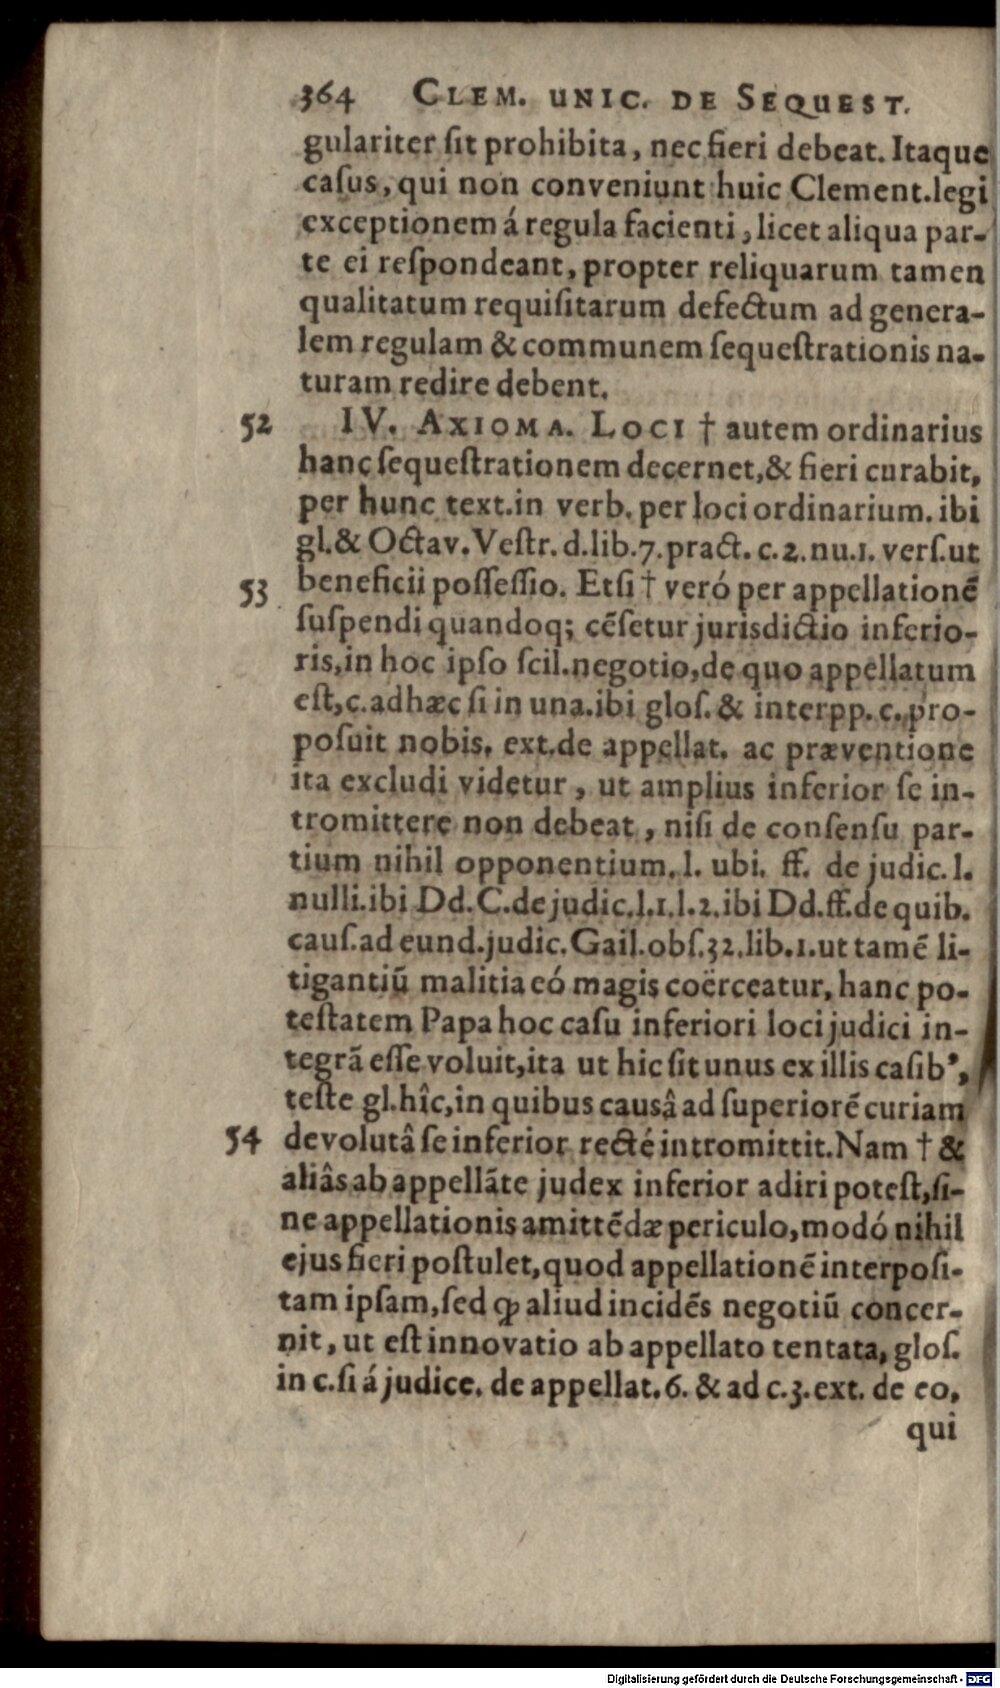 364 CLEM. UNIC. DE SEQUEST.
gulariter ſit prohibita, nec fieri debeat. Itaque
caſus, qui non conveniunt huic Clement.legi
exceptionem á regula facienti, licet aliqua par-
te ei reſpondeant, propter reliquarum tamen
qualitatum requiſitarum defectum ad genera-
lem regulam & communem ſequeſtrationis na-
turam redire debent.
52 IV. AXIOMA. LOCI † autem ordinarius
hanc ſequeſtrationem decernet,& fieri curabit,
per hunc text.in verb. per loci ordinarium. ibi
gl.& Octav. Veſtr. d.lib.7.pract. c.2.nu.1. verſ.ut
53 beneficii poſſeſſio. Etſi † veró per appellationẽ
ſuſpendi quandoq; cẽſetur jurisdictio inferio-
ris,in hoc ipſo ſcil.negotio,de quo appellatum
eſt,c.adhæc ſi in una.ibi gloſ. & interpp. c. pro-
poſuit nobis. ext.de appellat. ac præventione
ita excludi videtur, ut amplius inferior ſe in-
tromittere non debeat, niſi de conſenſu par-
tium nihil opponentium. l. ubi. ff. de judic. l.
nulli.ibi Dd. C.de judic.l.1.l.2.ibi Dd.ff.de quib.
cauſ.ad eund.judic. Gail.obſ.32.lib.1.ut tamẽ li-
tigantiũ malitia eó magis coërceatur, hanc po-
teſtatem Papa hoc caſu inferiori loci judici in-
tegrã eſſe voluit,ita ut hic ſit unus ex illis caſibꝰ,
teſte gl.hîc,in quibus causâ ad ſuperiorẽ curiam
54 devolutâ ſe inferior recté intromittit. Nam † &
aliâs ab appellãte judex inferior adiri poteſt,ſi-
ne appellationis amittẽdæ periculo,modó nihil
ejus fieri poſtulet,quod appellationẽ interpoſi-
tam ipſam,ſed ꝙ aliud incidẽs negotiũ concer-
nit, ut eſt innovatio ab appellato tentata, gloſ.
in c.ſi á judice. de appellat.6. & ad c.3.ext. de eo,
qui
Digitalisierung gefördert durch die Deutsche Forschungsgemeinschaft - DFG